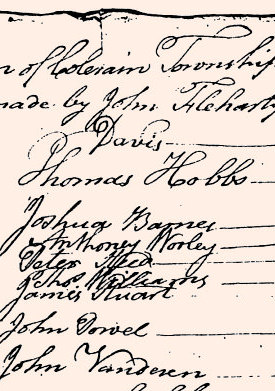 r of Colerain Township
made by John Fleharty
Davis
Thomas Hobbs
Joshua Barnes
Anthoney Worley
Peter
Thos Williams
James Stuart
John Powel
John Vanderen